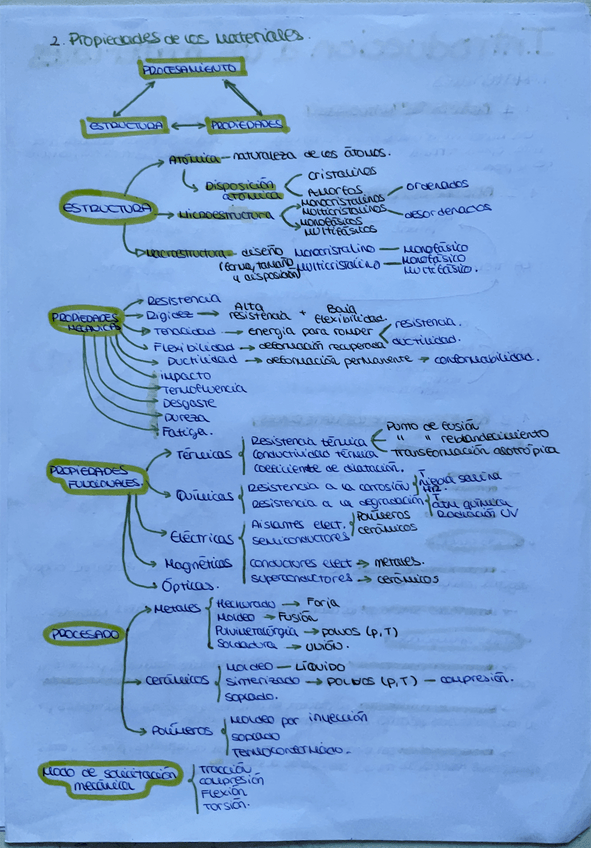 2. Propiedades de los Materiales.
PROCESAMIENTO
ESTRUCTURA PROPIEDADES
ESTRUCTURA
Atómica - naturaleza de los átomos.
Disposición atómica
cristalinos
Amorfos
Microestructura
Monocristalinos
Multicristalinos
Monofásicos
Multifásicos
ordenados
desordenados
Macroestructura - diseño
(forma, tamaño y disposición)
Monocristalino — Monofásico
Multicristalino — Monofásico
Multifásico.
PROPIEDADES MECÁNICAS
Resistencia
Rigidez → Alta resistencia + Baja flexibilidad.
Tenacidad → energía para romper
resistencia.
ductilidad.
Flexibilidad → deformación recuperada
Ductilidad → deformación permanente → conformabilidad.
impacto
Termofluencia
Desgaste
Dureza
Fatiga.
PROPIEDADES FUNCIONALES.
Térmicas
Resistencia térmica
Punto de fusión
" " reblandecimiento
Transformación alotrópica
conductividad térmica
coeficiente de dilatación.
Químicas
Resistencia a la corrosión
T
niebla salina
HR.
Resistencia a la degradación
T
atm química
Radiación UV
Eléctricas
Aislantes elect.
Polímeros
cerámicos
semiconductores
Magnéticas
conductores elect → metales.
superconductores → cerámicos
Ópticas.
PROCESADO
Metales
Mechurado → Forja
Moldeo → Fusión
Pulvimetalúrgia → polvos (P,T)
Soldadura → unión.
cerámicos
Moldeo — Líquido
Sinterizado → polvos (P,T) — compresión.
soplado.
Polímeros
Moldeo por inyección
soplado
Termoconformado.
Modo de solicitación mecánica
Tracción
compresión
Flexión
Torsión.